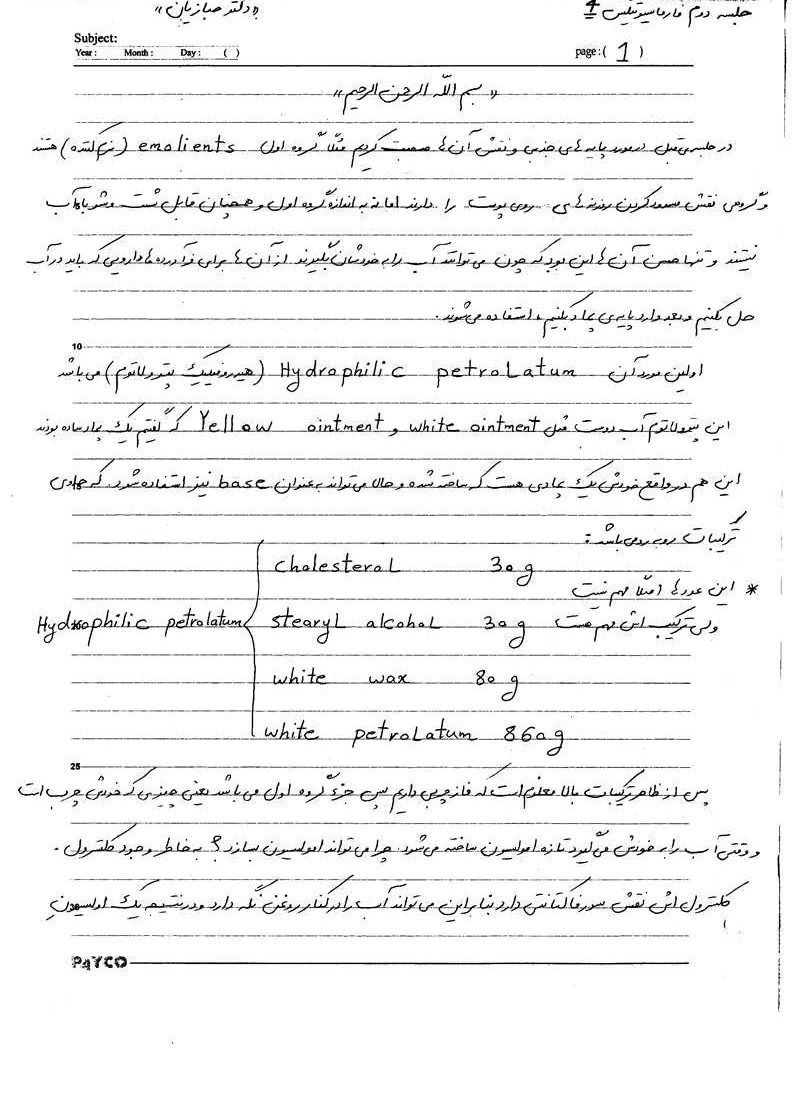 جلسه دوم فارماسیوتیکس 4
«دکتر صبازیان»
Subject:
Year: Month: Day: ( )
page:( 1 )
«بسم الله الرحمن الرحیم»
در جلسه‌ی قبل درمورد پایه های جذبی و نقش آن ها صحبت کردیم مثلاً گروه اول emolients (نرم کننده) هستند
و گروهی نقش مسدود کردن روزنه های روی پوست را دارند اما نه به اندازه گروه اول و همچنان قابل شست وشو با آب
نیستند و تنها حسن آن ها این بود که چون می توانند آب را به خودشان بگیرند از آن ها برای فرآورده ها دارویی که باید در آب
حل بکنیم و بعد وارد پایه ی پماد بکنیم، استفاده می شوند.
10
اولین مورد آن Hydrophilic petrolatum (هیدروفیلیک پترولاتوم) می باشد
این پترولاتوم آب دوست مثل white ointment و Yellow ointment که گفتیم یک پماد ساده بودند
این هم در واقع خودش یک پمادی هست که ساخته شده و حالا می تواند به عنوان base نیز استفاده شود. که حاوی
ترکیبات روبه رو می باشد:
Hydrophilic petrolatum
cholesterol 30 g
stearyl alcohol 30 g
white wax 80 g
white petrolatum 860 g
* این عددها اصلاً مهم نیست
ولی ترکیب اش مهم هست
25
پس از ظاهر ترکیبات بالا معلوم است که فاز چربی داریم پس جزء گروه اول می باشد یعنی چیزی که خودش چرب است
و وقتی آب را به خودش می گیرد تازه امولسیون ساخته می شود. چرا می تواند امولسیون بسازد؟ به خاطر وجود کلسترول.
کلسترول اش نقش سورفاکتانتی دارد بنابراین می تواند آب را در کنار روغن نگه دارد و در نتیجه یک امولسیون
PAYCO